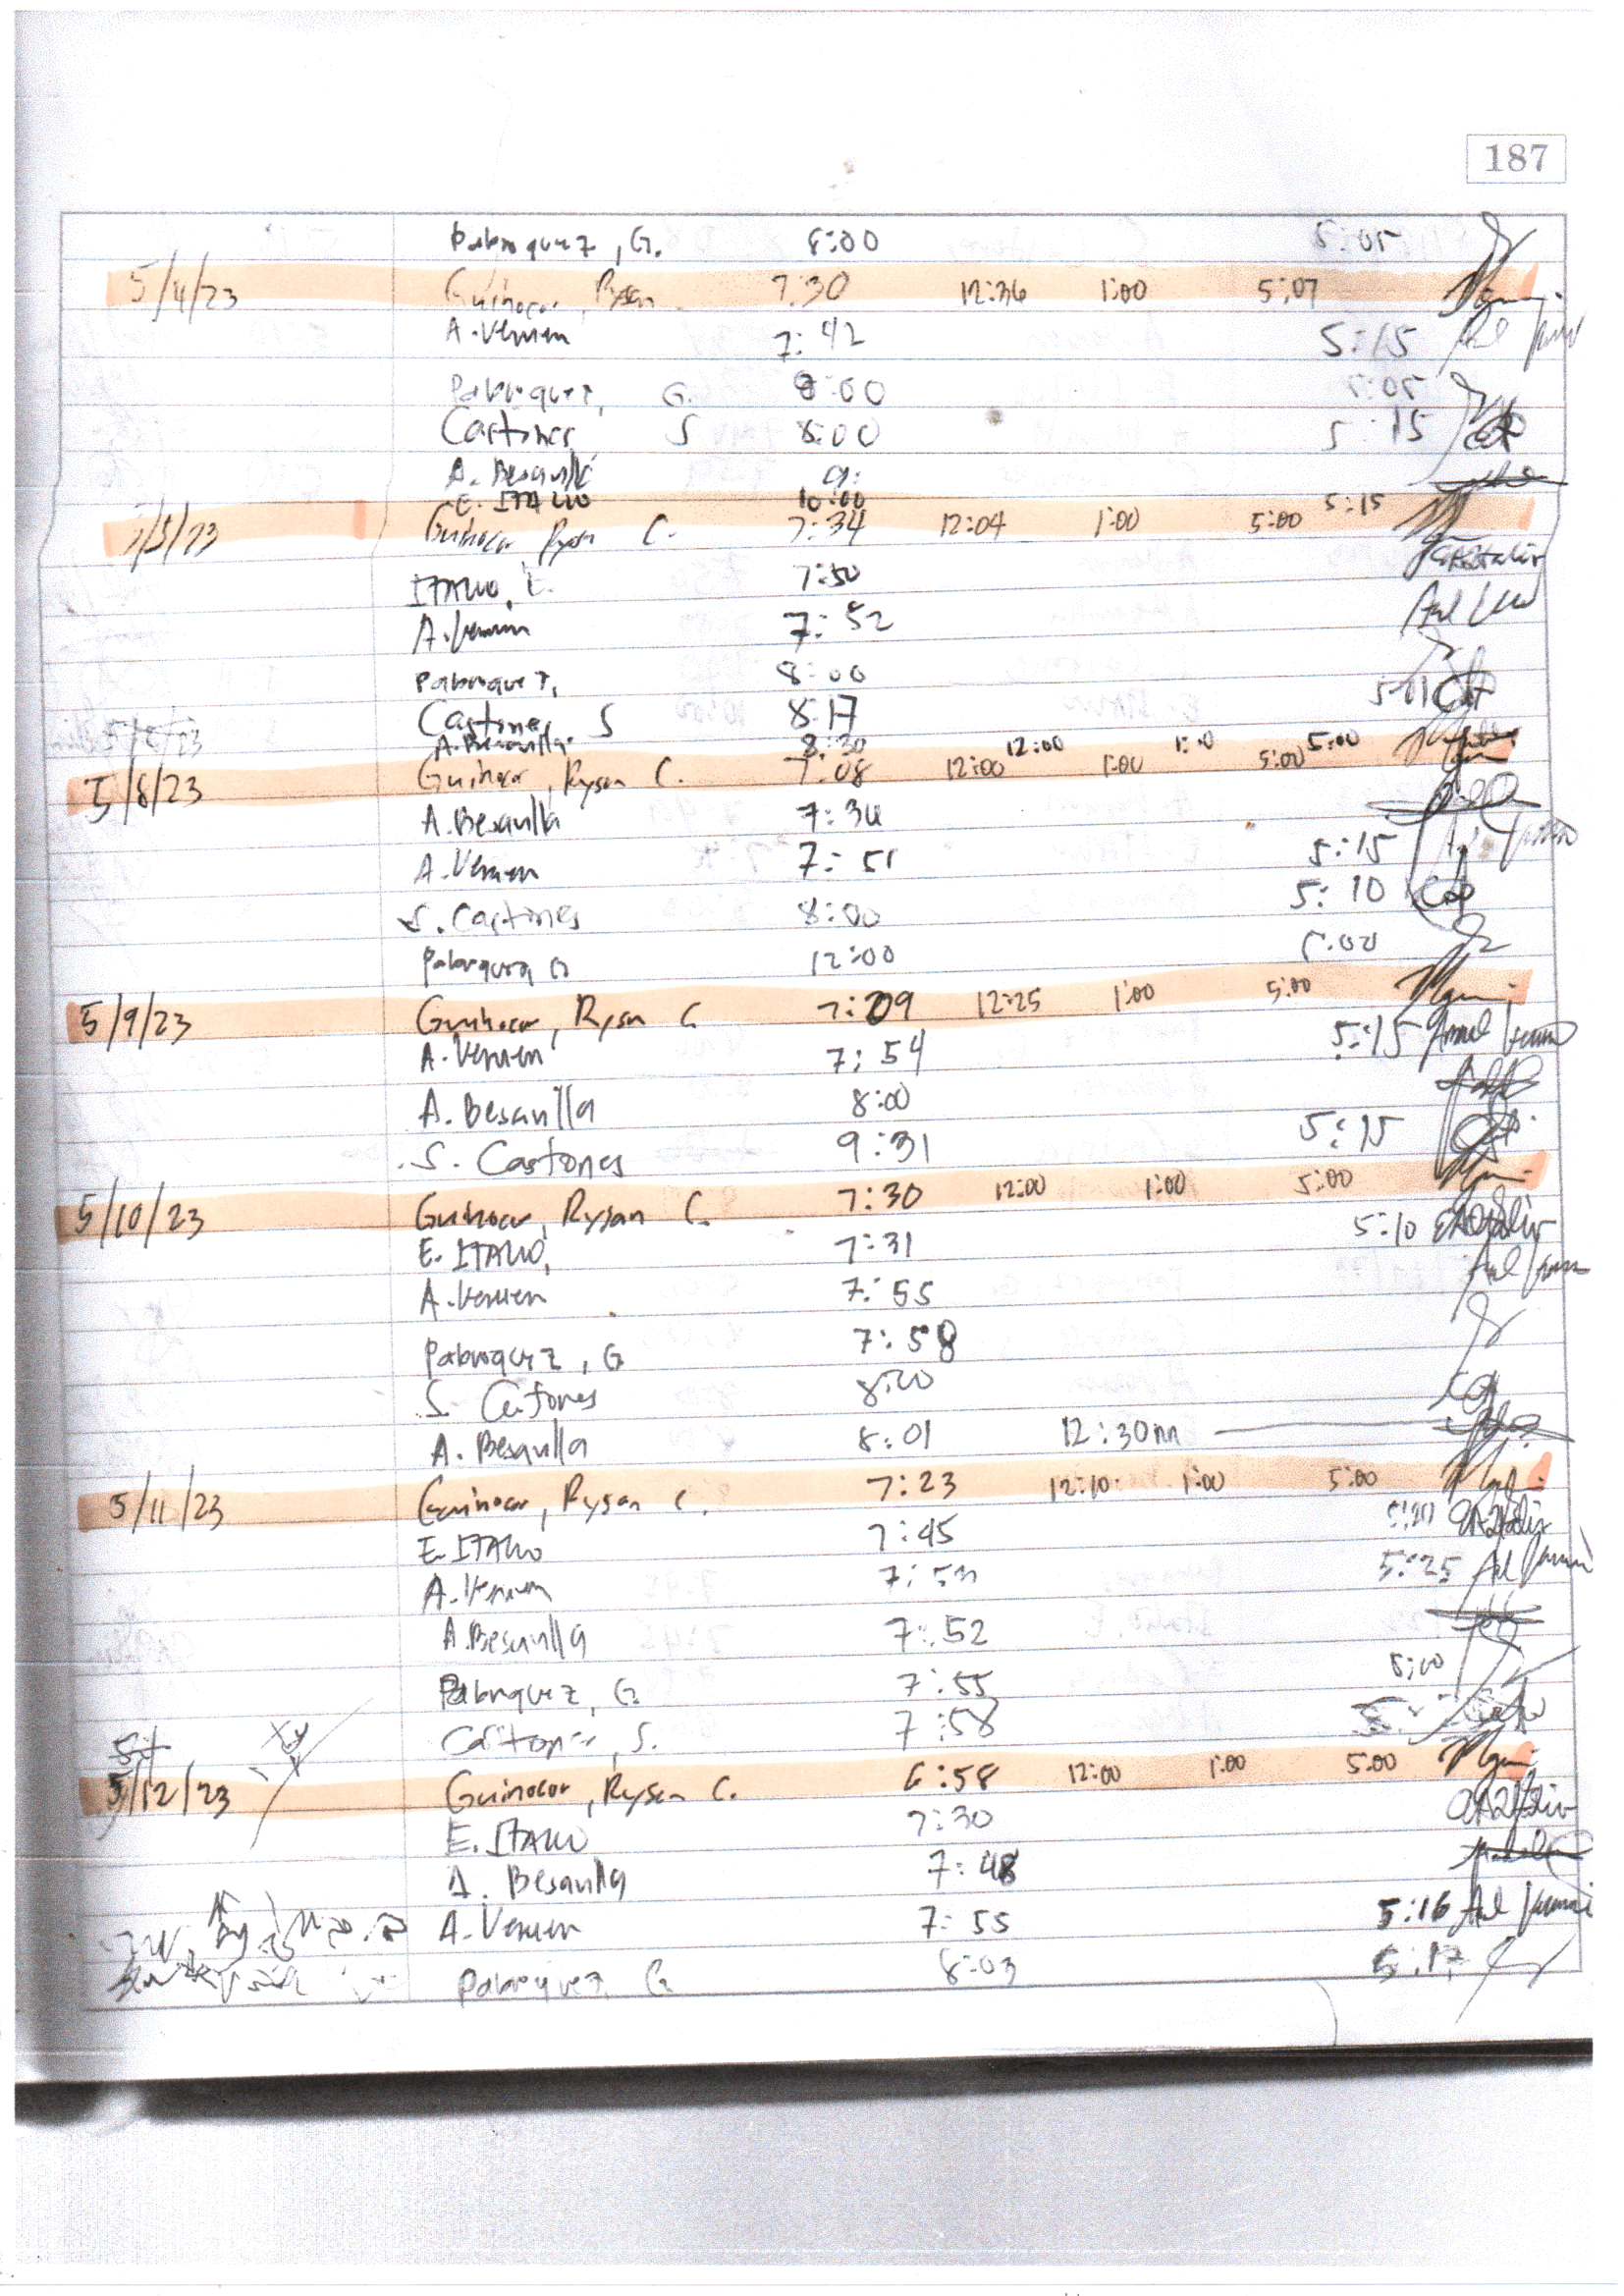 187
Pabroquez, G. 8:00 5:05
5/4/23 Guinocor, Rysan 7:30 12:36 1:00 5:07
A. Veruen 7:42 5:15
Pabroquez, G. 8:00 5:05
Castones S 8:00 5:15
A. Besanilla 9:
E. ITALIO 10:00 5:15
5/5/23 Guinocor Rysan C. 7:34 12:04 1:00 5:00
ITALIO, E. 7:50
A. Veruen 7:52
Pabroquez, 8:00
Castones S 8:17 5:01
A. Besanilla 8:30 12:00 1:00 5:00
5/8/23 Guinocor, Rysan C. 7:08 12:00 1:00 5:00
A. Besanilla 7:34
A. Veruen 7:51 5:15
S. Castones 8:00 5:10
Pabroquez G 12:00 5:00
5/9/23 Guinocor, Rysan C 7:09 12:25 1:00 5:00
A. Veruen 7:54 5:15
A. Besanilla 8:00
S. Castones 9:31 5:15
5/10/23 Guinocor, Rysan C. 7:30 12:00 1:00 5:00
E. ITALIO, 7:31 5:10
A. Veruen 7:55
Pabroquez, G 7:58
S. Castones 8:00
A. Besanilla 8:01 12:30nn
5/11/23 Guinocor, Rysan C. 7:23 12:10 1:00 5:00
E. ITALIO 7:45 5:20
A. Veruen 5:25
A. Besanilla 7:52
Pabroquez, G. 7:55 5:00
Castones, S. 7:58
5/12/23 Guinocor, Rysan C. 6:58 12:00 1:00 5:00
E. ITALIO 7:30
A. Besanilla 7:48
A. Veruen 7:55 5:16
Pabroquez G 8:03 5:17